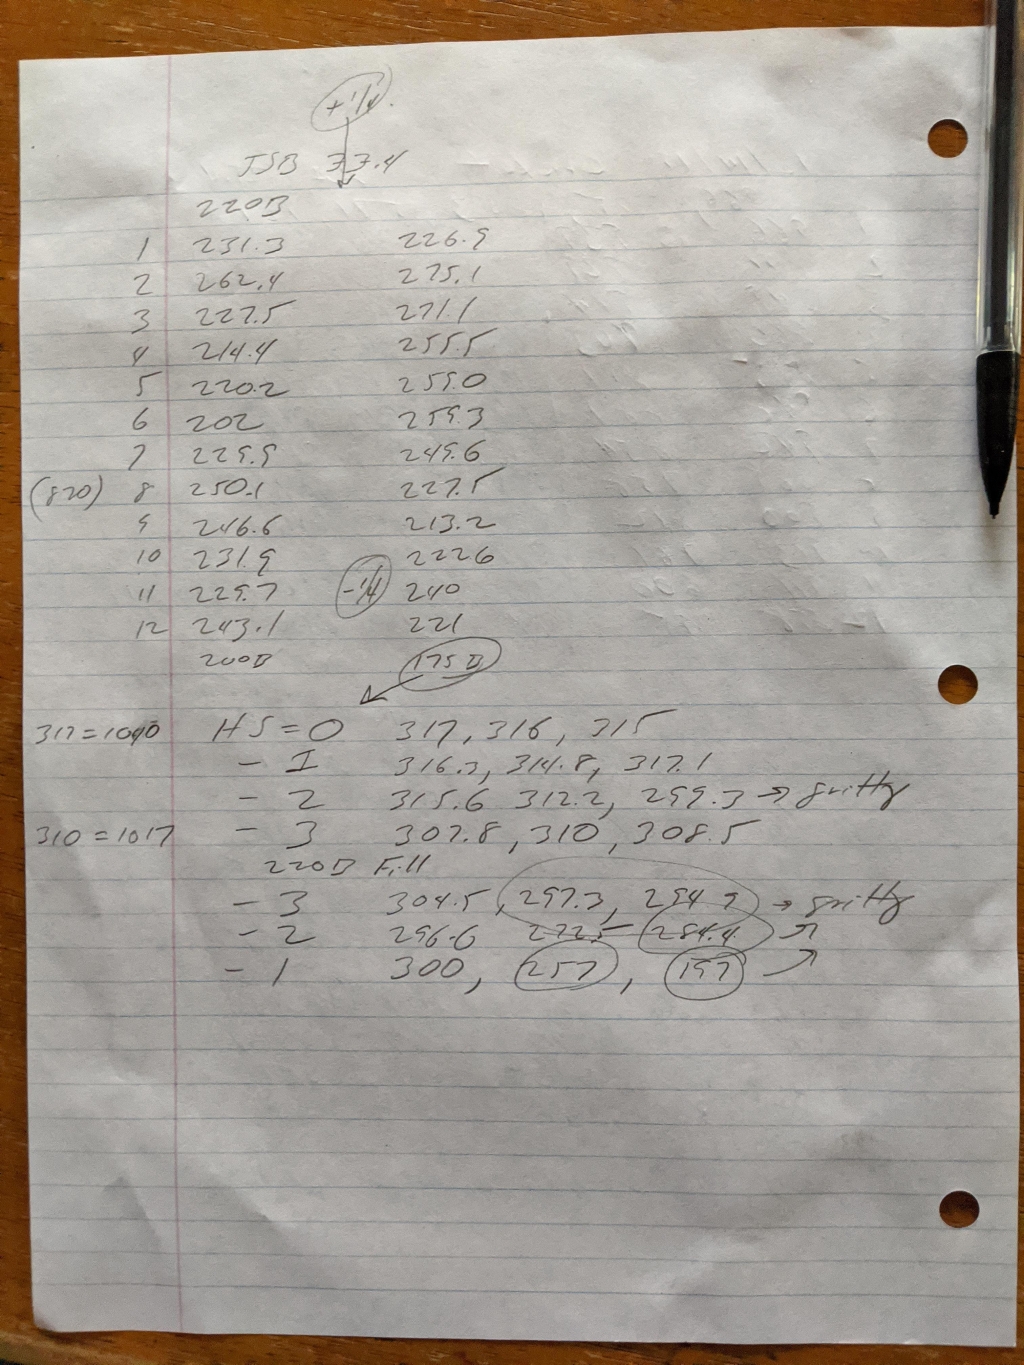 +1/4.
JSB 33.4
220B
1 231.3 226.9
2 262.4 275.1
3 227.5 271.1
4 214.4 255.5
5 220.2 259.0
6 202 259.3
7 229.9 249.6
(820) 8 250.1 227.5
9 246.6 213.2
10 231.9 2226
11 229.7 -1/4 240
12 243.1 221
200B 175B
317=1040 HS=0 317, 316, 315
- 1 316.2, 314.8, 317.1
- 2 315.6 312.2, 299.3 → gritty
310=1017 - 3 307.8, 310, 308.5
220B Fill
- 3 304.5, 297.3, 294.7 → gritty
- 2 296.6 272.5 284.4
- 1 300, 257, 197